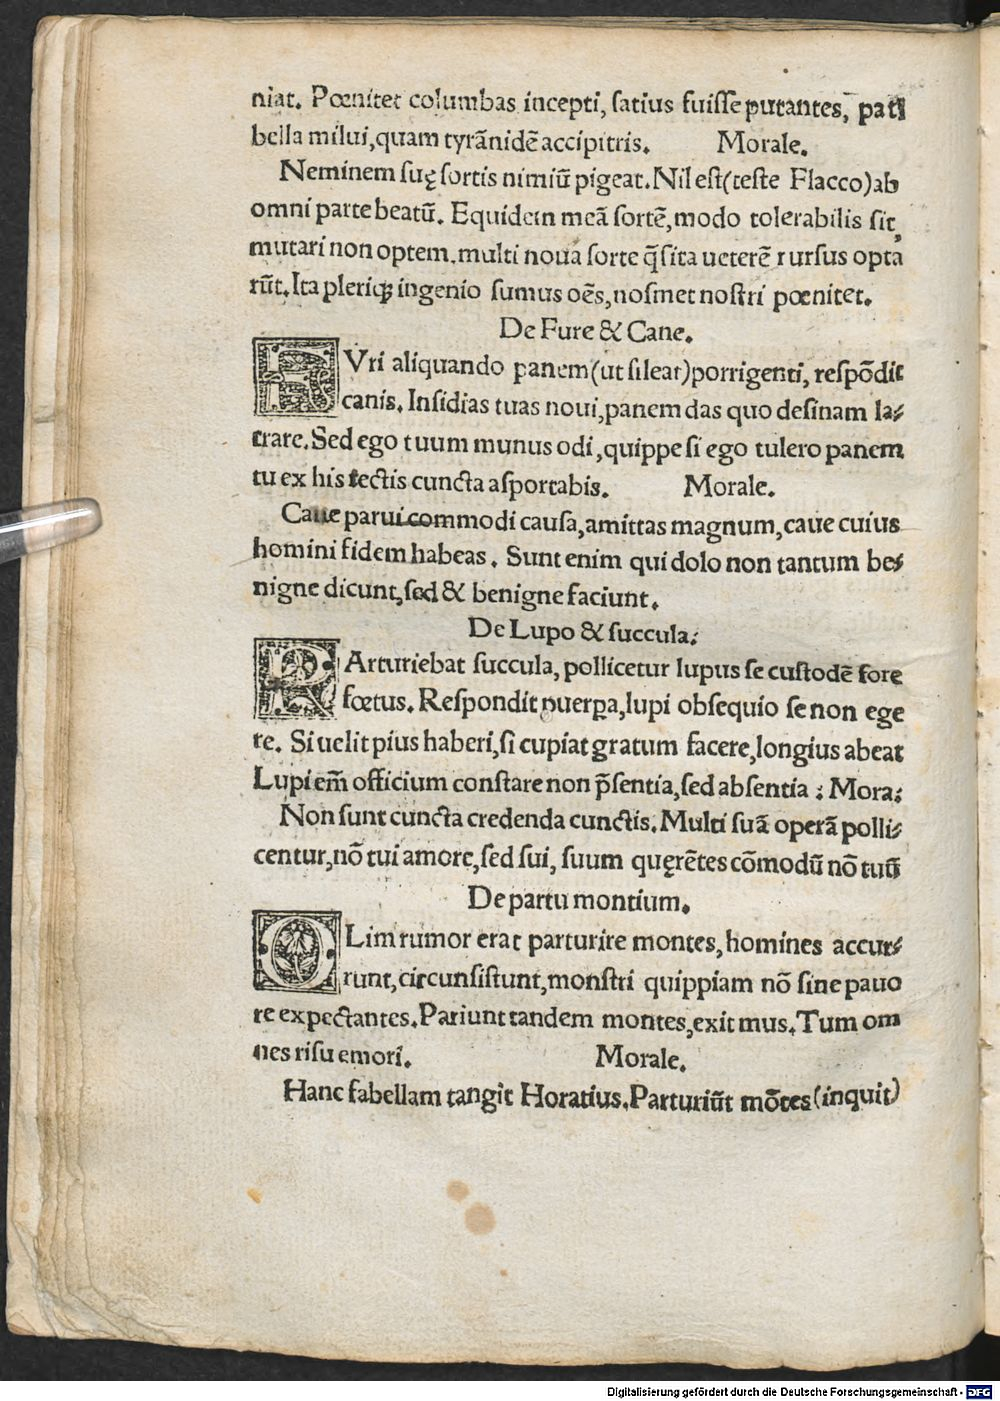 niat. Pœnitet columbas incepti, satius fuisse putantes, pati
bella milui, quam tyrãnidẽ accipitris. Morale.
Neminem suę sortis nimiũ pigeat. Nil est (teste Flacco) ab
omni parte beatũ. Equidem meã sortẽ, modo tolerabilis sit,
mutari non optem. multi noua sorte q̃sita ueterẽ rursus opta
rũt. Ita pleriq; ingenio sumus oẽs, nosmet nostri pœnitet.
De Fure & Cane.
FVri aliquando panem (ut sileat) porrigenti, respõdit
canis. Insidias tuas noui, panem das quo desinam la-
trare. Sed ego tuum munus odi, quippe si ego tulero panem
tu ex his tectis cuncta asportabis. Morale.
Caue parui commodi causa, amittas magnum, caue cuius
homini fidem habeas. Sunt enim qui dolo non tantum be-
nigne dicunt, sed & benigne faciunt.
De Lupo & succula:
PArturiebat succula, pollicetur lupus se custodẽ fore
fœtus. Respondit puerꝑa, lupi obsequio se non ege
re. Si uelit pius haberi, si cupiat gratum facere, longius abeat
Lupi em̃ officium constare non p̃sentia, sed absentia: Mora:
Non sunt cuncta credenda cunctis. Multi suã operã polli-
centur, nõ tui amore, sed sui, suum quęrẽtes cõmodũ nõ tuũ
De partu montium.
OLim rumor erat parturire montes, homines accur-
runt, circunsistunt, monstri quippiam nõ sine pauo
re expectantes. Pariunt tandem montes, exit mus. Tum om
nes risu emori. Morale.
Hanc fabellam tangit Horatius. Parturiũt mõtes (inquit)
Digitalisierung gefördert durch die Deutsche Forschungsgemeinschaft - DFG